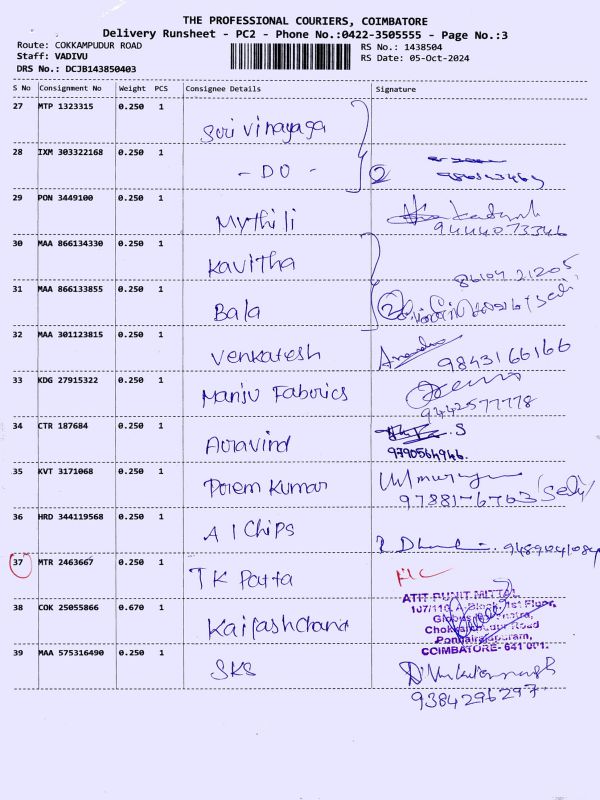 THE PROFESSIONAL COURIERS, COIMBATORE
Delivery Runsheet - PC2 - Phone No.:0422-3505555 - Page No.:3
Route: COKKAMPUDUR ROAD
RS No.: 1438504
Staff: VADIVU
RS Date: 05-Oct-2024
DRS No.: DCJB143850403
S No Consignment No Weight PCS Consignee Details Signature
27 MTP 1323315 0.250 1
Sri Vinayaga
28 IXM 303322168 0.250 1
- DO - 2
29 PON 3449100 0.250 1
Mythili
9444073346
30 MAA 866134330 0.250 1
Kavitha
31 MAA 866133855 0.250 1
86104 21205
Bala 2
32 MAA 301123815 0.250 1
Venkatesh 9843166166
33 KDG 27915322 0.250 1
Manju Fabrics
9442577778
34 CTR 187684 0.250 1
Aravind S
9790564946.
35 KVT 3171068 0.250 1
Prem Kumar
36 HRD 344119568 0.250 1
A 1 Chips
37 MTR 2463667 0.250 1
TK Patta
38 COK 25055866 0.670 1
ATIT PUNIT MITTAL
107/110, A-Block, 1st Floor,
Kailashchand
Road
COIMBATORE- 641 001.
39 MAA 575316490 0.250 1
SKS
9384296297